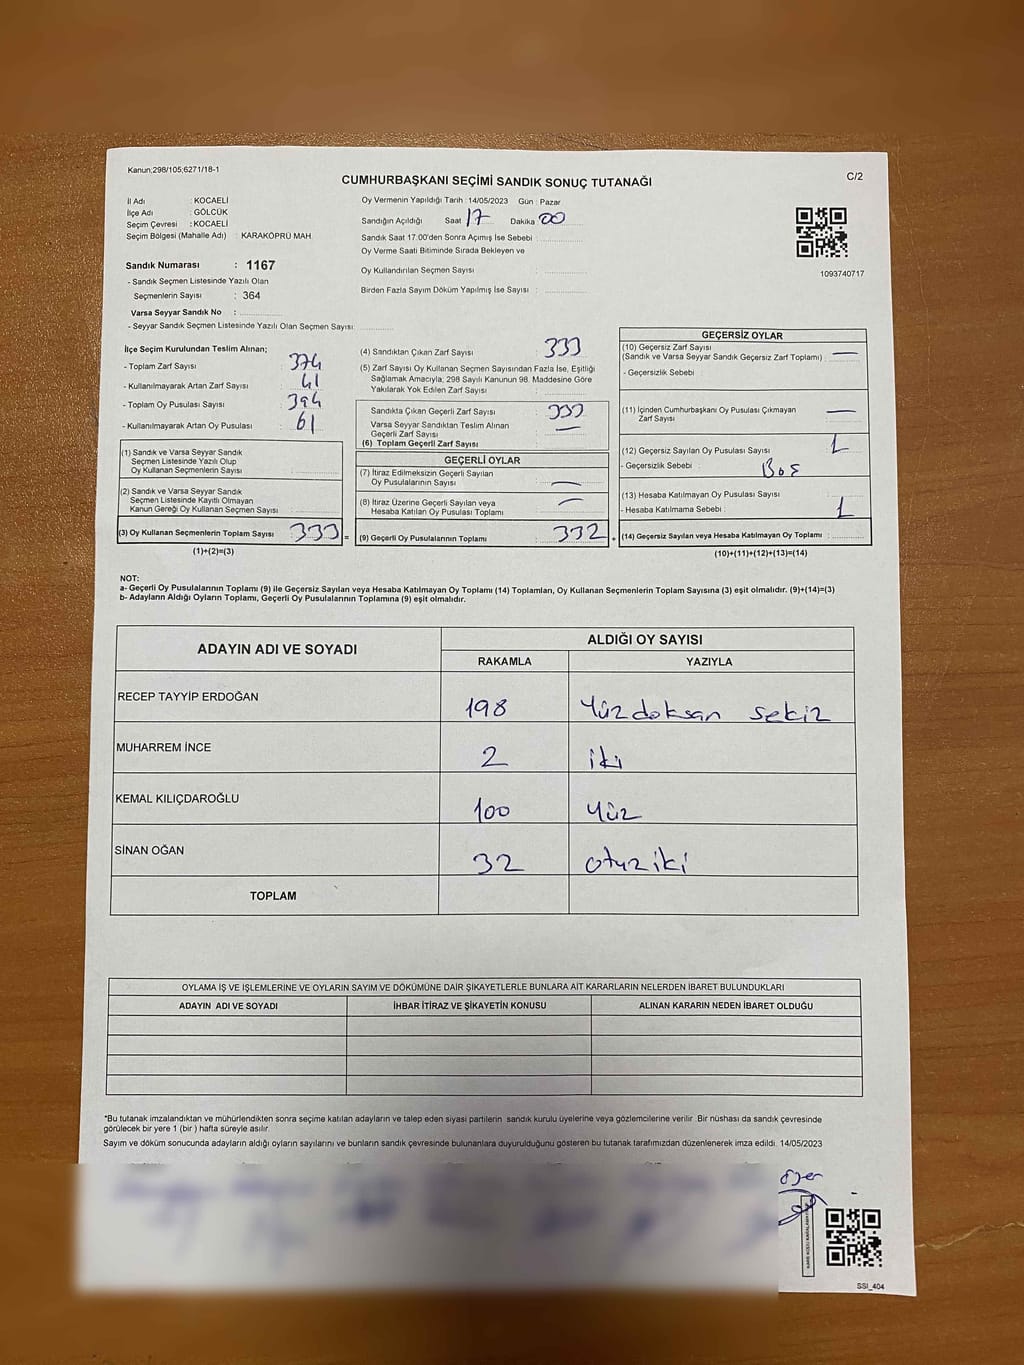 Kanun;298/105;6271/18-1
C/2
CUMHURBAŞKANI SEÇİMİ SANDIK SONUÇ TUTANAĞI
İl Adı : KOCAELİ
İlçe Adı : GÖLCÜK
Seçim Çevresi : KOCAELİ
Seçim Bölgesi (Mahalle Adı) : KARAKÖPRÜ MAH.
Sandık Numarası : 1167
- Sandık Seçmen Listesinde Yazılı Olan
Seçmenlerin Sayısı : 364
Varsa Seyyar Sandık No :
- Seyyar Sandık Seçmen Listesinde Yazılı Olan Seçmen Sayısı:
Oy Vermenin Yapıldığı Tarih : 14/05/2023 Gün : Pazar
Sandığın Açıldığı Saat 17 Dakika 00
Sandık Saat 17:00'den Sonra Açılmış İse Sebebi :
Oy Verme Saati Bitiminde Sırada Bekleyen ve
Oy Kullandırılan Seçmen Sayısı :
Birden Fazla Sayım Döküm Yapılmış İse Sayısı :
1093740717
İlçe Seçim Kurulundan Teslim Alınan;
- Toplam Zarf Sayısı : 374
- Kullanılmayarak Artan Zarf Sayısı : 41
- Toplam Oy Pusulası Sayısı : 394
- Kullanılmayarak Artan Oy Pusulası : 61
(1) Sandık ve Varsa Seyyar Sandık
Seçmen Listesinde Yazılı Olup
Oy Kullanan Seçmenlerin Sayısı :
(2) Sandık ve Varsa Seyyar Sandık
Seçmen Listesinde Kayıtlı Olmayan
Kanun Gereği Oy Kullanan Seçmen Sayısı :
(3) Oy Kullanan Seçmenlerin Toplam Sayısı : 333 =
(1)+(2)=(3)
(4) Sandıktan Çıkan Zarf Sayısı : 333
(5) Zarf Sayısı Oy Kullanan Seçmen Sayısından Fazla İse, Eşitliği
Sağlamak Amacıyla; 298 Sayılı Kanunun 98. Maddesine Göre
Yakılarak Yok Edilen Zarf Sayısı :
Sandıkta Çıkan Geçerli Zarf Sayısı : 333
Varsa Seyyar Sandıktan Teslim Alınan
Geçerli Zarf Sayısı : —
(6) Toplam Geçerli Zarf Sayısı :
GEÇERLİ OYLAR
(7) İtiraz Edilmeksizin Geçerli Sayılan
Oy Pusulalarının Sayısı : —
(8) İtiraz Üzerine Geçerli Sayılan veya
Hesaba Katılan Oy Pusulası Toplamı : —
(9) Geçerli Oy Pusulalarının Toplamı : 332 +
GEÇERSİZ OYLAR
(10) Geçersiz Zarf Sayısı
(Sandık ve Varsa Seyyar Sandık Geçersiz Zarf Toplamı) : —
- Geçersizlik Sebebi :
(11) İçinden Cumhurbaşkanı Oy Pusulası Çıkmayan
Zarf Sayısı : —
(12) Geçersiz Sayılan Oy Pusulası Sayısı : 1
- Geçersizlik Sebebi : Boş
(13) Hesaba Katılmayan Oy Pusulası Sayısı :
- Hesaba Katılmama Sebebi : 1
(14) Geçersiz Sayılan veya Hesaba Katılmayan Oy Toplamı :
(10)+(11)+(12)+(13)=(14)
NOT:
a- Geçerli Oy Pusulalarının Toplamı (9) ile Geçersiz Sayılan veya Hesaba Katılmayan Oy Toplamı (14) Toplamları, Oy Kullanan Seçmenlerin Toplam Sayısına (3) eşit olmalıdır. (9)+(14)=(3)
b- Adayların Aldığı Oyların Toplamı, Geçerli Oy Pusulalarının Toplamına (9) eşit olmalıdır.
ADAYIN ADI VE SOYADI
ALDIĞI OY SAYISI
RAKAMLA YAZIYLA
RECEP TAYYİP ERDOĞAN 198 Yüzdoksan sekiz
MUHARREM İNCE 2 iki
KEMAL KILIÇDAROĞLU 100 Yüz
SİNAN OĞAN 32 otuz iki
TOPLAM
OYLAMA İŞ VE İŞLEMLERİNE VE OYLARIN SAYIM VE DÖKÜMÜNE DAİR ŞİKAYETLERLE BUNLARA AİT KARARLARIN NELERDEN İBARET BULUNDUKLARI
ADAYIN ADI VE SOYADI İHBAR İTİRAZ VE ŞİKAYETİN KONUSU ALINAN KARARIN NEDEN İBARET OLDUĞU
*Bu tutanak imzalandıktan ve mühürlendikten sonra seçime katılan adayların ve talep eden siyasi partilerin sandık kurulu üyelerine veya gözlemcilerine verilir. Bir nüshası da sandık çevresinde
görülecek bir yere 1 (bir) hafta süreyle asılır.
Sayım ve döküm sonucunda adayların aldığı oyların sayılarını ve bunların sandık çevresinde bulunanlara duyurulduğunu gösteren bu tutanak tarafımızdan düzenlenerek imza edildi. 14/05/2023
SSI_404